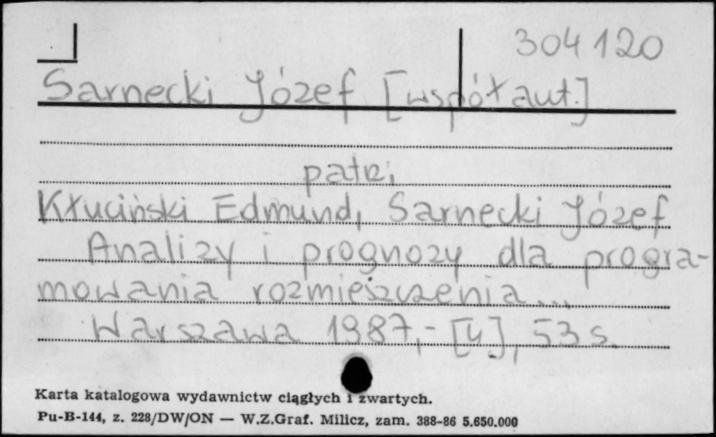 304120
Sarnecki Józef [współaut.]
patrz
Kłuciński Edmund, Sarnecki Józef
Analizy i prognozy dla progra-
mowania rozmieszczenia...
Warszawa 1987,- [4], 53 s.
Karta katalogowa wydawnictw ciągłych i zwartych.
Pu-B-144, z. 228/DW/ON — W.Z.Graf. Milicz, zam. 388-86 5.650.000